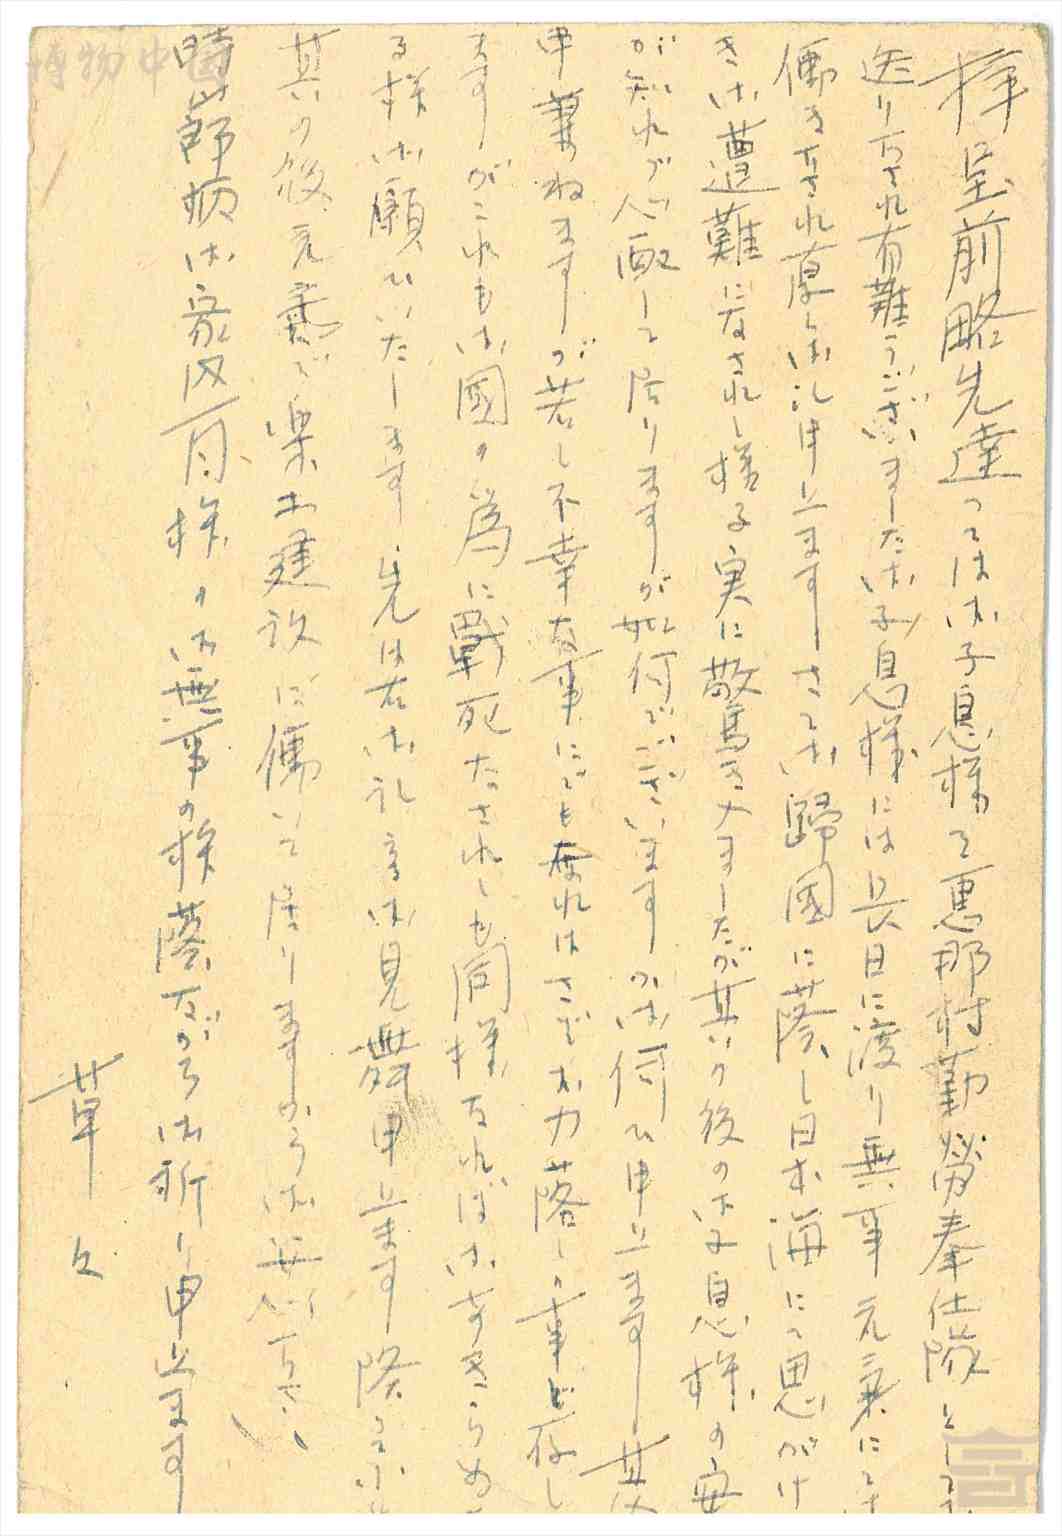 拝呈前略先達っては御子息様を恵那村勤労奉仕隊として
送り下され有難うございました御子息様には長日に渡り無事元気にて
働き下され厚く御礼申上ますさて御歸國に際し日本海にて思がけ
きは遭難になされし様子実に敬馬き入ましたが其の後の御子息様の安
が知れず心配して居りますが如何でございますか御伺ひ申上ます其
申兼ねますが若し不幸な事にでも有ればさぞお力落しの事と存じ
ますがこれも御國の為に戰死なされしも同様なれば御あきらめ
る様御願ひいたします先は右御礼 御見舞申上ます降って
其の後元気で楽土建設に働いて居りますから御安心下さい
時節柄御家内一同様の御無事の様蔭ながら御祈り申上ます
草々
博物中国